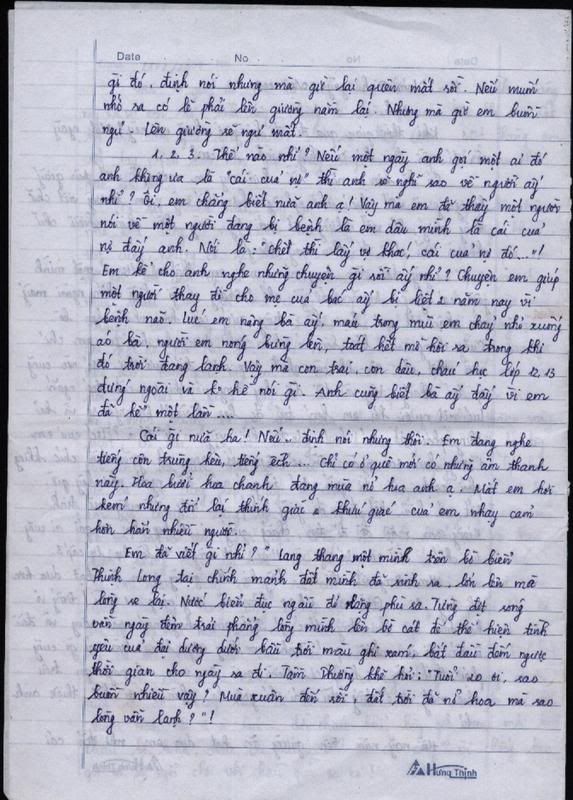 Date No
gì đó, định nói nhưng mà giờ lại quên mất rồi. Nếu muốn
nhớ ra có lẽ phải lên giường nằm lại. Nhưng mà giờ em buồn
ngủ. Lên giường sẽ ngủ mất.
1, 2, 3. Thế nào nhỉ? Nếu một ngày anh gọi một ai đó
anh không ưa là "cái của nợ" thì anh sẽ nghĩ sao về người ấy
nhỉ? Ôi, em chẳng biết nữa anh ạ! Vậy mà em đã thấy một người
nói về một người đang bị bệnh là em dâu mình là cái của
nợ đấy anh. Nói là: "chết thì lấy vợ khác, cái của nợ đó..."!
Em kể cho anh nghe những chuyện gì rồi ấy nhỉ? Chuyện em giúp
một người thay đồ cho mẹ của bác ấy bị liệt 2 năm nay vì
bệnh não. Lúc em nâng bà ấy, máu trong mũi em chảy nhỏ xuống
áo bà, người em nóng bừng lên, toát hết mồ hôi ra trong khi
đó trời đang lạnh. Vậy mà con trai, con dâu, cháu học lớp 12, 13
đứng ngoài và k hề nói gì. Anh cũng biết bà ấy đấy vì em
đã kể một lần...
Cái gì nữa ha! Nếu.. định nói nhưng thôi. Em đang nghe
tiếng côn trùng kêu, tiếng ếch... Chỉ có ở quê mới có những âm thanh
này. Hoa bưởi hoa chanh đang mùa nở hoa anh ạ. Mắt em hơi
kém nhưng đổi lại thính giác & khứu giác của em nhạy cảm
hơn hẳn nhiều người.
Em đã viết gì nhỉ? "Lang thang một mình trên bờ biển
Thịnh Long tại chính mảnh đất mình đã sinh ra, lớn lên mà
lòng se lại. Nước biển đục ngầu đỏ nặng phù sa. Từng đợt sóng
vẫn ngày đêm trải phẳng lòng mình lên bờ cát để thể hiện tình
yêu của đại dương dưới bầu trời màu ghi xám, bắt đầu đếm ngược
thời gian cho ngày ra đi. Tâm Phương khẽ hỏi: "Tuổi 20 ơi, sao
buồn nhiều vậy? Mùa xuân đến rồi, đất trời đã nở hoa mà sao
lòng vẫn lạnh?"!
Hưng Thịnh